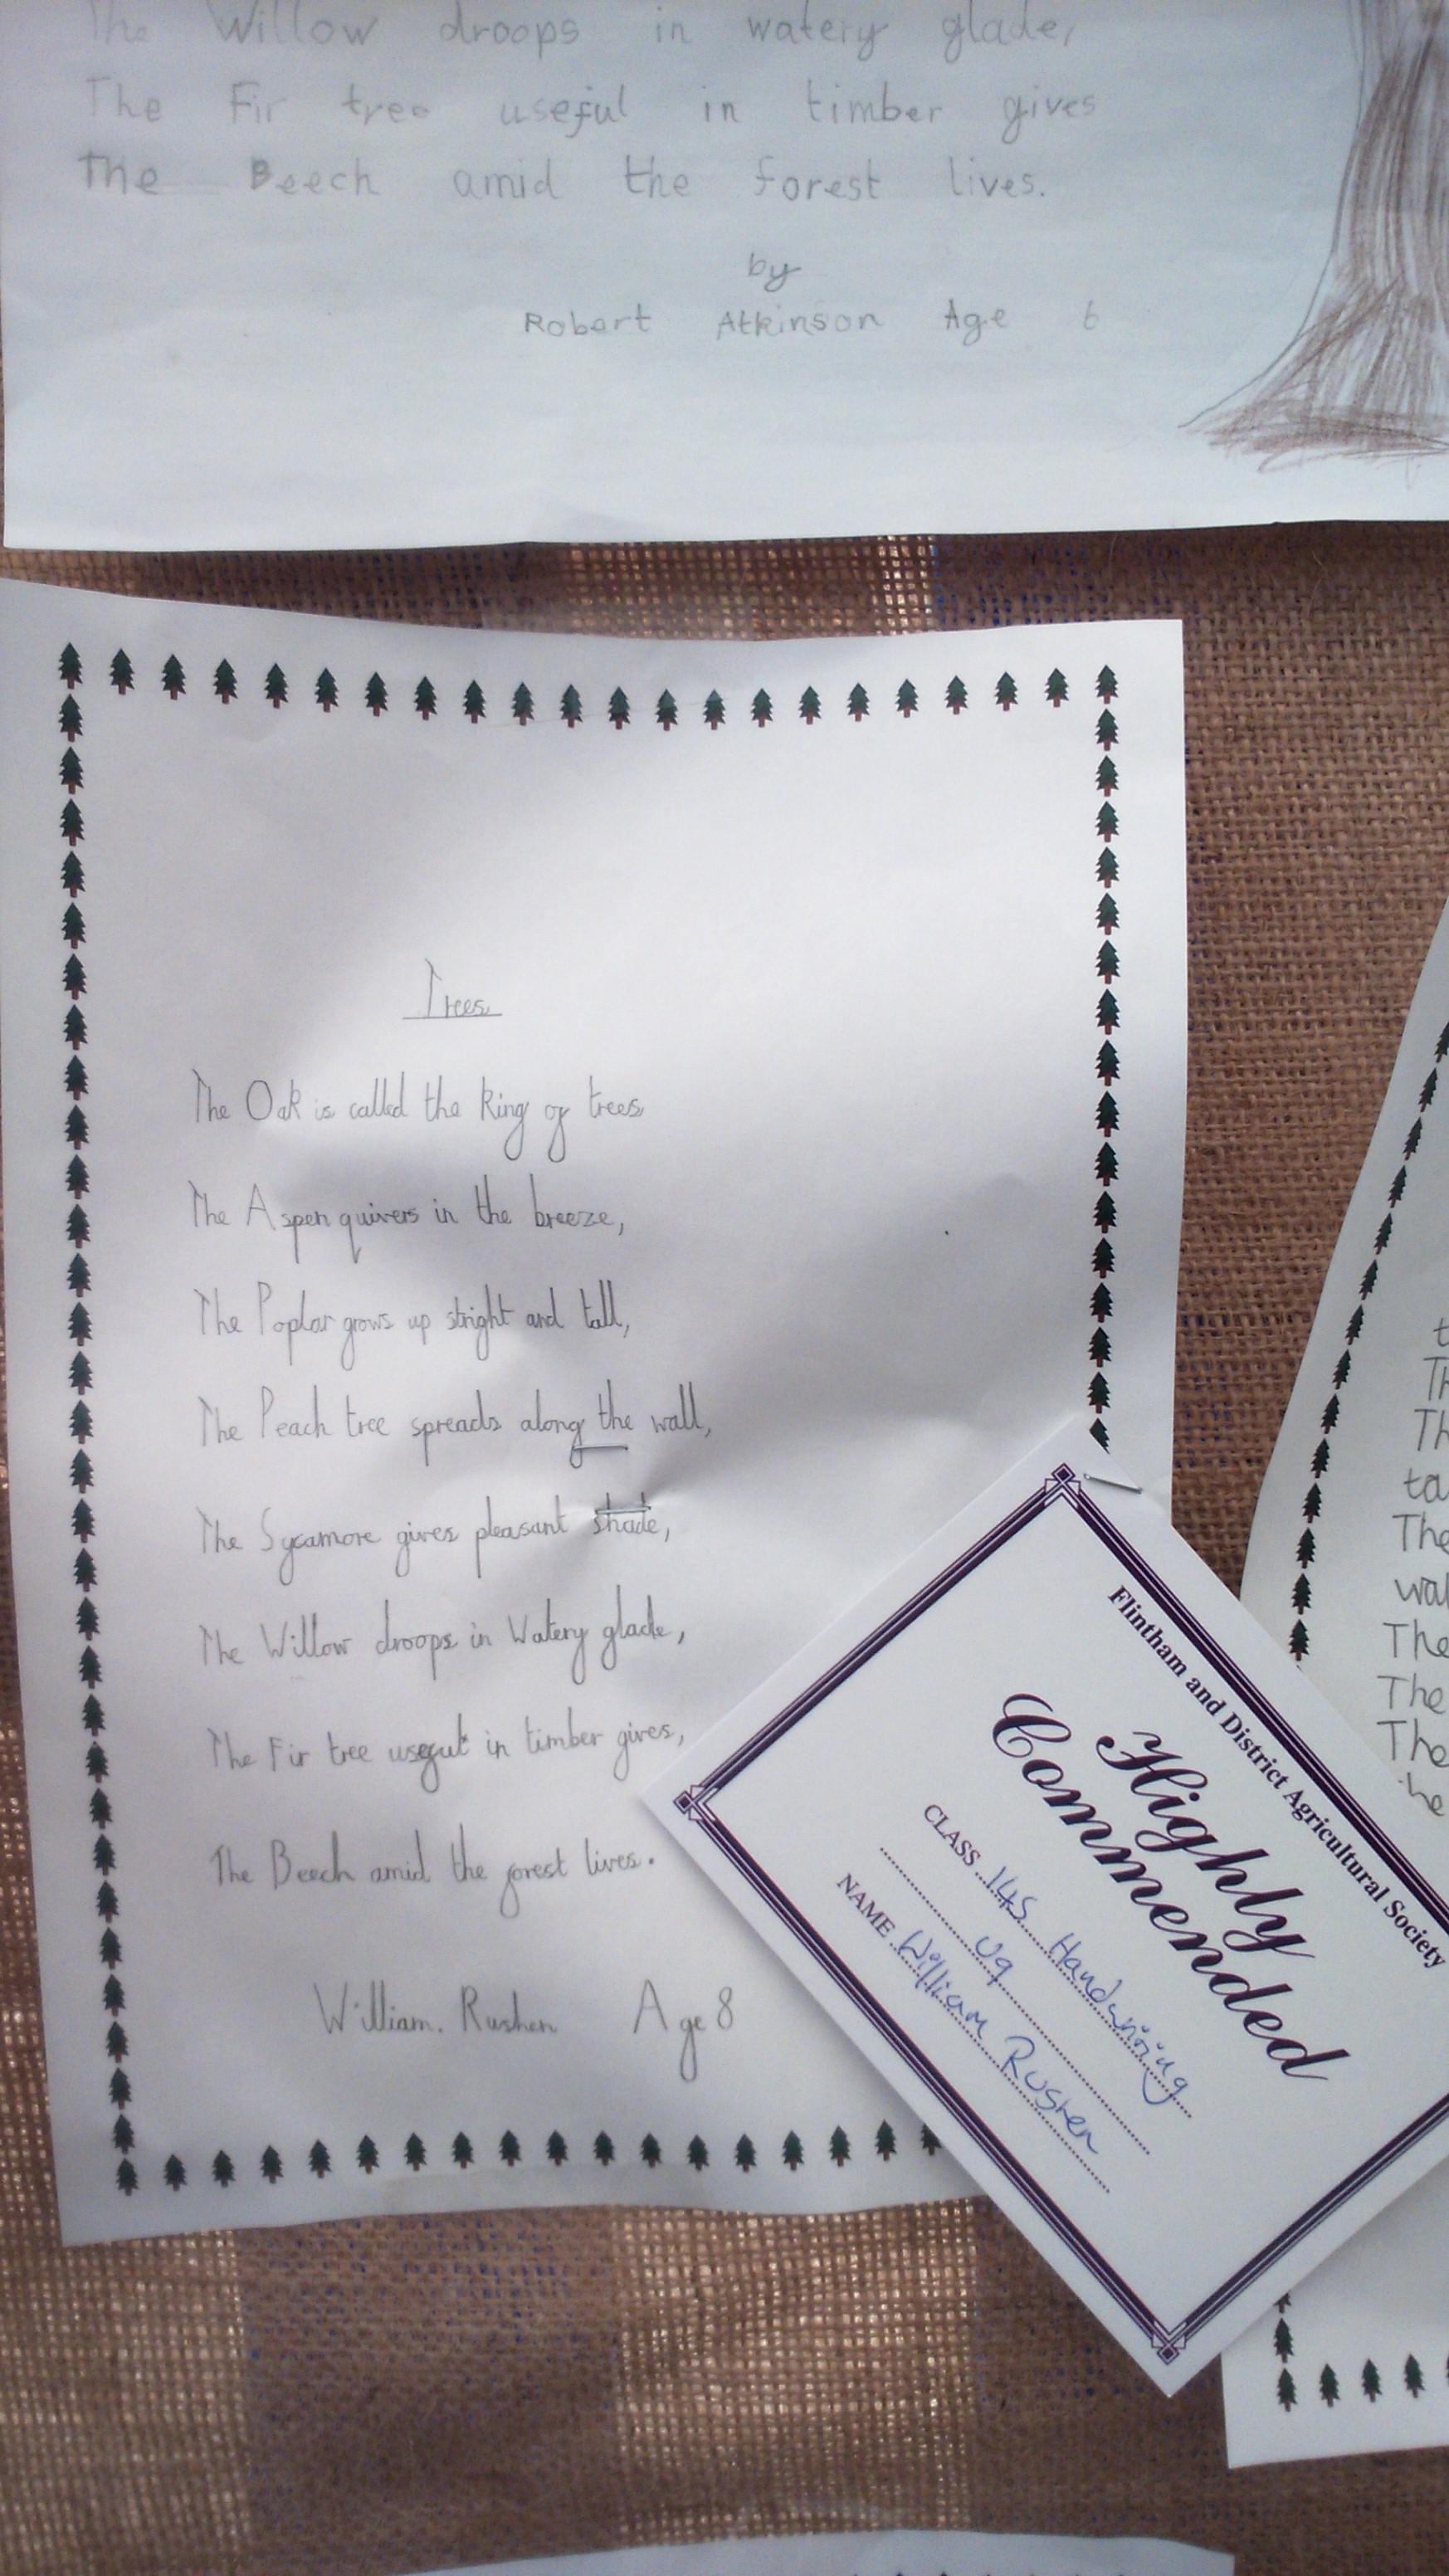 The Willow droops in watery glade,
The Fir tree useful in timber gives
The Beech amid the forest lives.
by
Robert Atkinson Age 6
Trees
The Oak is called the king of trees
The Aspen quivers in the breeze,
The Poplar grows up stright and tall,
The Peach tree spreads along the wall,
The Sycamore gives pleasant shade,
The Willow droops in Watery glade,
The Fir tree useful in timber gives,
The Beech amid the forest lives.
William. Rushen Age 8
Flintham and District Agricultural Society
Highly
Commended
CLASS 145 Handwriting
U9
NAME William Rushen
t
Th
Th
ta
The
wal
The
The
The
he